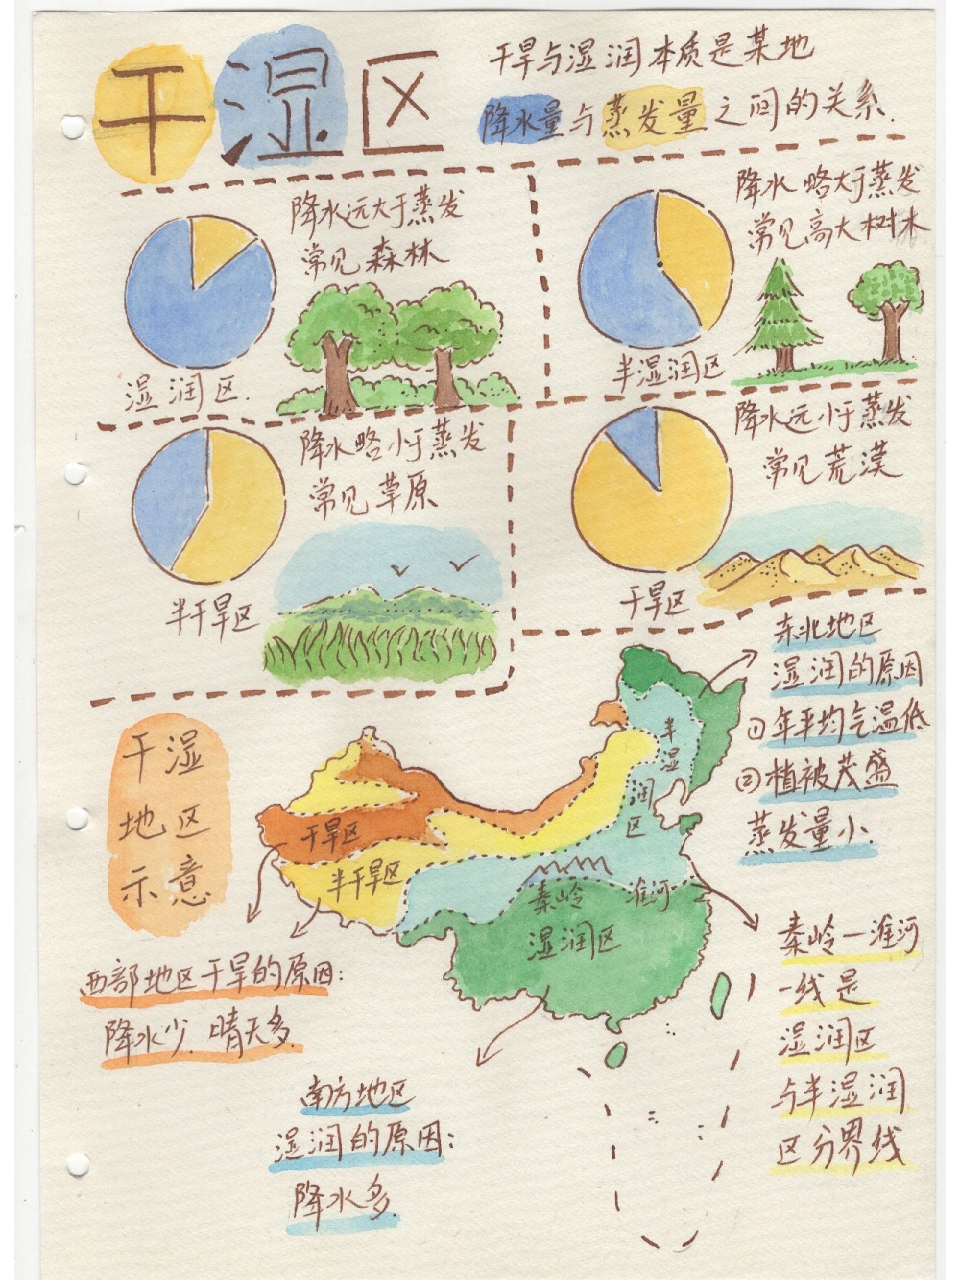 干湿区
干旱与湿润本质是某地
降水量与蒸发量之间的关系.
降水远大于蒸发
常见森林
湿润区.
降水略大于蒸发
常见高大树木
半湿润区
降水略小于蒸发
常见草原
半干旱区
降水远小于蒸发
常见荒漠
干旱区
干湿
地区
示意
东北地区
湿润的原因
①年平均气温低
②植被茂盛
蒸发量小.
半
湿
润
区
干旱区
半干旱区
秦岭 淮河
湿润区
秦岭—淮河
一线是
湿润区
与半湿润
区分界线
西部地区干旱的原因:
降水少.晴天多.
南方地区
湿润的原因:
降水多.